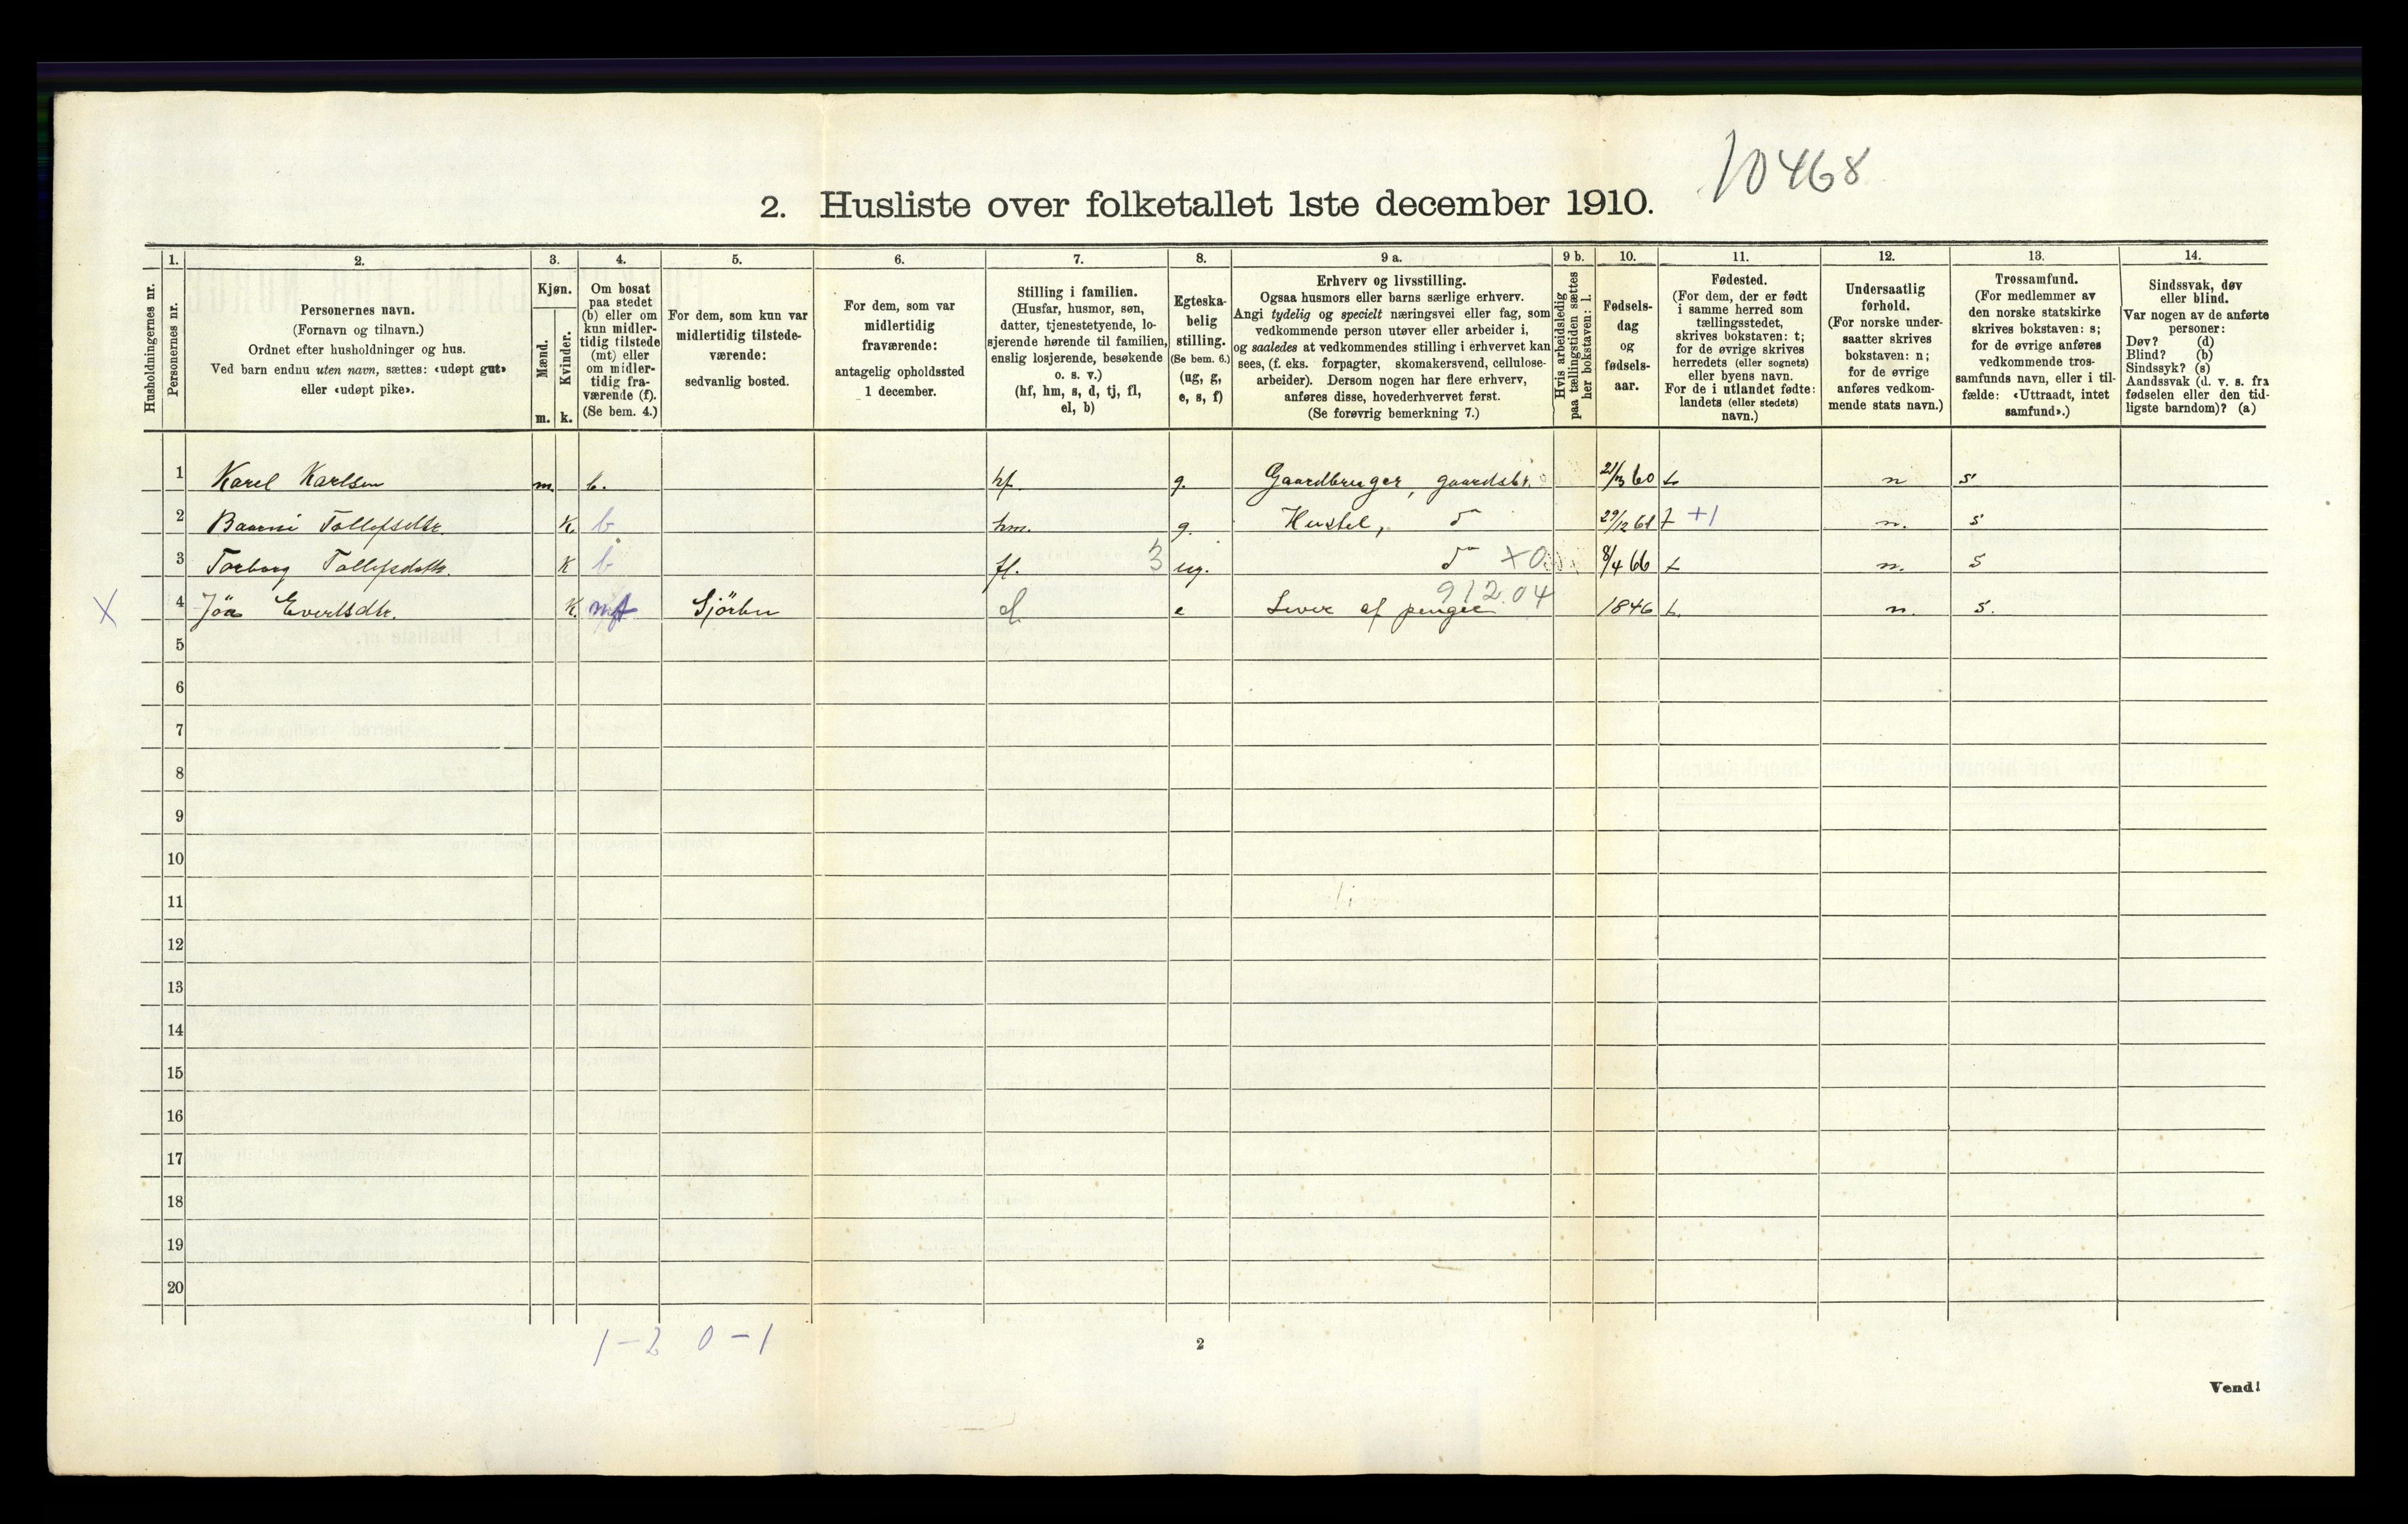 10468
2. Husliste over folketallet 1ste december 1910.
Husholdningernes nr.
1.
Personernes nr.
2.
Personernes navn.
(Fornavn og tilnavn.)
Ordnet efter husholdninger og hus.
Ved barn endnu uten navn, sættes: «udøpt gut»
eller «udøpt pike».
3.
Kjøn.
Mænd.
Kvinder.
m. k.
4.
Om bosat
paa stedet
(b) eller om
kun midler-
tidig tilstede
(mt) eller
om midler-
tidig fra-
værende (f).
(Se bem. 4.)
5.
For dem, som kun var
midlertidig tilstede-
værende:
sedvanlig bosted.
6.
For dem, som var
midlertidig
fraværende:
antagelig opholdssted
1 december.
7.
Stilling i familien.
(Husfar, husmor, søn,
datter, tjenestetyende, lo-
sjerende hørende til familien,
enslig losjerende, besøkende
o. s. v.)
(hf, hm, s, d, tj, fl,
el, b)
8.
Egteska-
belig
stilling.
(Se bem. 6.)
(ug, g,
e, s, f)
9 a.
Erhverv og livsstilling.
Ogsaa husmors eller barns særlige erhverv.
Angi tydelig og specielt næringsvei eller fag, som
vedkommende person utøver eller arbeider i,
og saaledes at vedkommendes stilling i erhvervet kan
sees, (f. eks. forpagter, skomakersvend, cellulose-
arbeider). Dersom nogen har flere erhverv,
anføres disse, hovederhvervet først.
(Se forøvrig bemerkning 7.)
9 b.
Hvis arbeidsledig
paa tællingstiden sættes
her bokstaven: l.
10.
Fødsels-
dag
og
fødsels-
aar.
11.
Fødested.
(For dem, der er født
i samme herred som
tællingsstedet,
skrives bokstaven: t;
for de øvrige skrives
herredets (eller sognets)
eller byens navn.
For de i utlandet fødte:
landets (eller stedets)
navn.)
12.
Undersaatlig
forhold.
(For norske under-
saatter skrives
bokstaven: n;
for de øvrige
anføres vedkom-
mende stats navn.)
13.
Trossamfund.
(For medlemmer av
den norske statskirke
skrives bokstaven: s;
for de øvrige anføres
vedkommende tros-
samfunds navn, eller i til-
fælde: «Uttraadt, intet
samfund».)
14.
Sindssvak, døv
eller blind.
Var nogen av de anførte
personer:
Døv? (d)
Blind? (b)
Sindssyk? (s)
Aandssvak (d. v. s. fra
fødselen eller den tid-
ligste barndom)? (a)
1 Karel Karlsen m. b. hf. g. Gaardbruger, gaardsbr. 21/3 60 t n s
2 Tollefsdtr. K. b hm. g. Hustel, d 29/12 61 t +1 n. s
3 Torborg Tollefsdatr. K b fl. 3 ug. d X 0 8/4 66 t n. s
X 4 Evertsdtr. K. mt Sjörbu el e Lever af penger 912.04 1846 t. n. s.
5
6
7
8
9
10
11
12
13
14
15
16
17
18
19
20
1 - 2 0 - 1
2
Vend!